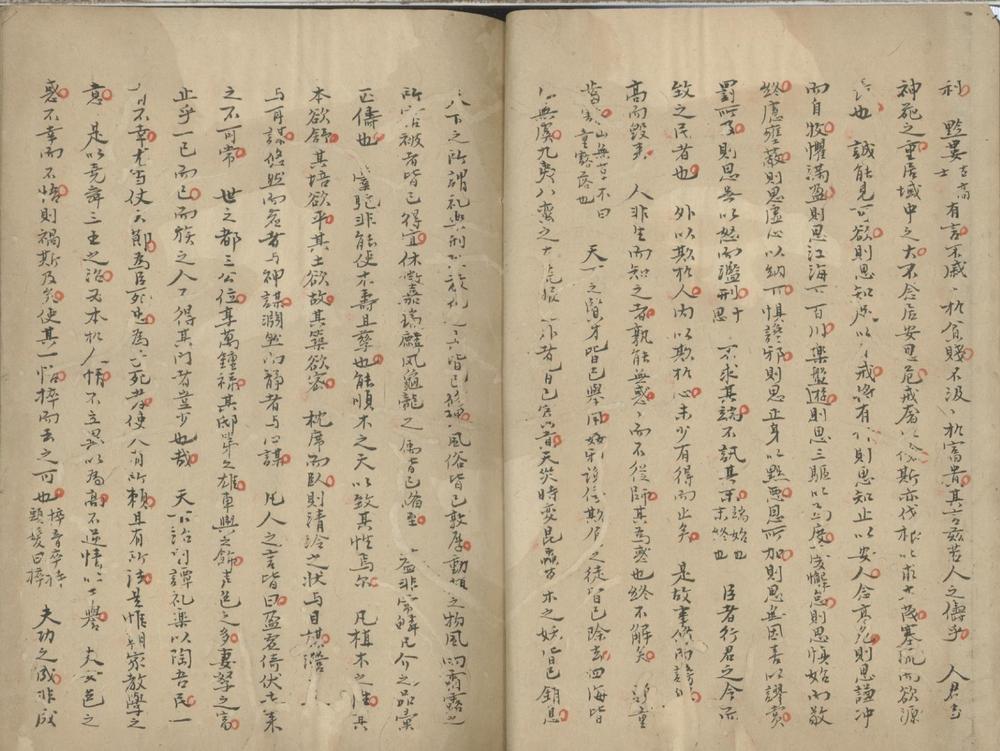 利 黔婁古高士有言不戚、於貧賤不汲、於富貴其言茲若人之儔乎 人君當
神器之重居域中之大不念居安思危戒奢以儉斯亦伐根以求木茂塞流而欲源
長也 誠能見可欲則思知足以自戒將有作則思知止以安人念高危則思謙冲
而自牧懼滿盈則思江海下百川樂盤遊則思三驅以為度憂懈怠則思慎始而敬
終慮壅蔽則思虛心以納下懼讒邪則思正身以黜惡恩所加則思無因喜以謬賞
罰所及則思無以怒而濫刑十思 不求其端不訊其末端始也末終也 臣者行君之令而
致之民者也 外以欺於人內以欺於心未少有得而止矣 是故事修而謗興德
高而毀來 人非生而知之者孰能無惑、而不從師其為惑也終不解矣 童
山無草木曰童 天下之賢才皆已舉用奸邪讒佞欺負之徒皆已除去四海皆
已無虞九夷八蠻之 皆已賓 天災時變昆蟲草木之妖皆已銷息
天下之所謂礼樂刑政 皆已修 風俗皆已敦厚動植之物風雨霜露之
所霑被者皆已得宜休徵嘉瑞麟鳳龜龍之屬皆已備至 蓋非常鱗凡介之品彙
匹儔也 橐駝非能使木壽且孳也能順木之天以致其性焉尔 凡植木之性其
本欲舒其培欲平其土欲故其築欲密 枕席而臥則清泠之狀与目謀瀯瀯
之聲与耳謀悠然而虛者与神謀淵然而靜者与心謀 凡人之言皆曰盈虛倚伏去來
之不可常 世之都三公位享萬鍾祿其邸第之雄車輿之飾声色之多妻孥之富
止乎一己而已而族之人不得其門者豈少也哉 天下治則譚礼樂以陶吾民一
有不幸尤當仗大節為臣死忠為子死孝使人有所賴且有所法是惟朝家教學之
意 是以堯舜三王之治必本於人情不立異以為高不逆情以干譽 夫女色之
惑不幸而不悟則禍斯及矣使其一悟捽而去之可也捽音卒持頭髮曰捽 夫功之成非成